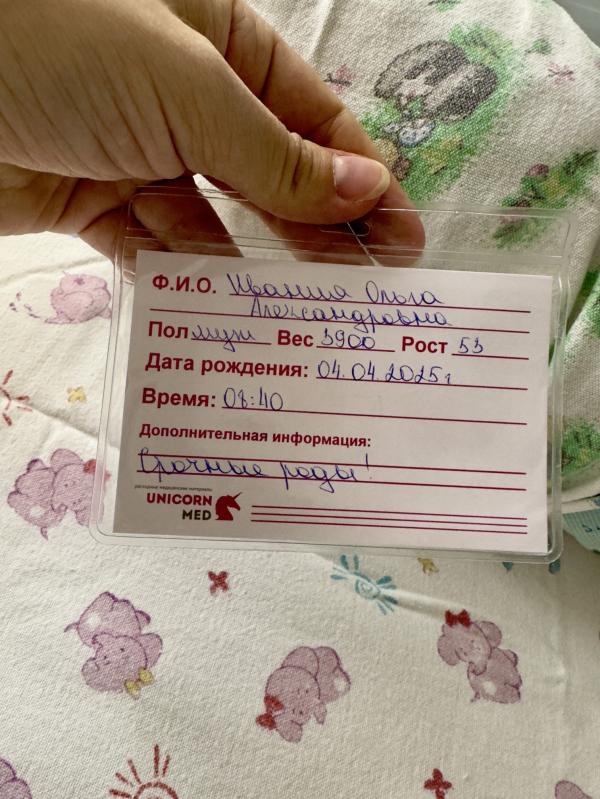 Ф.И.О. Ивания Ольга
Александровна
Пол муж Вес 3900 Рост 53
Дата рождения: 04.04.2025г
Время: 08:40
Дополнительная информация:
Срочные роды!
расходные медицинские материалы
UNICORN
MED